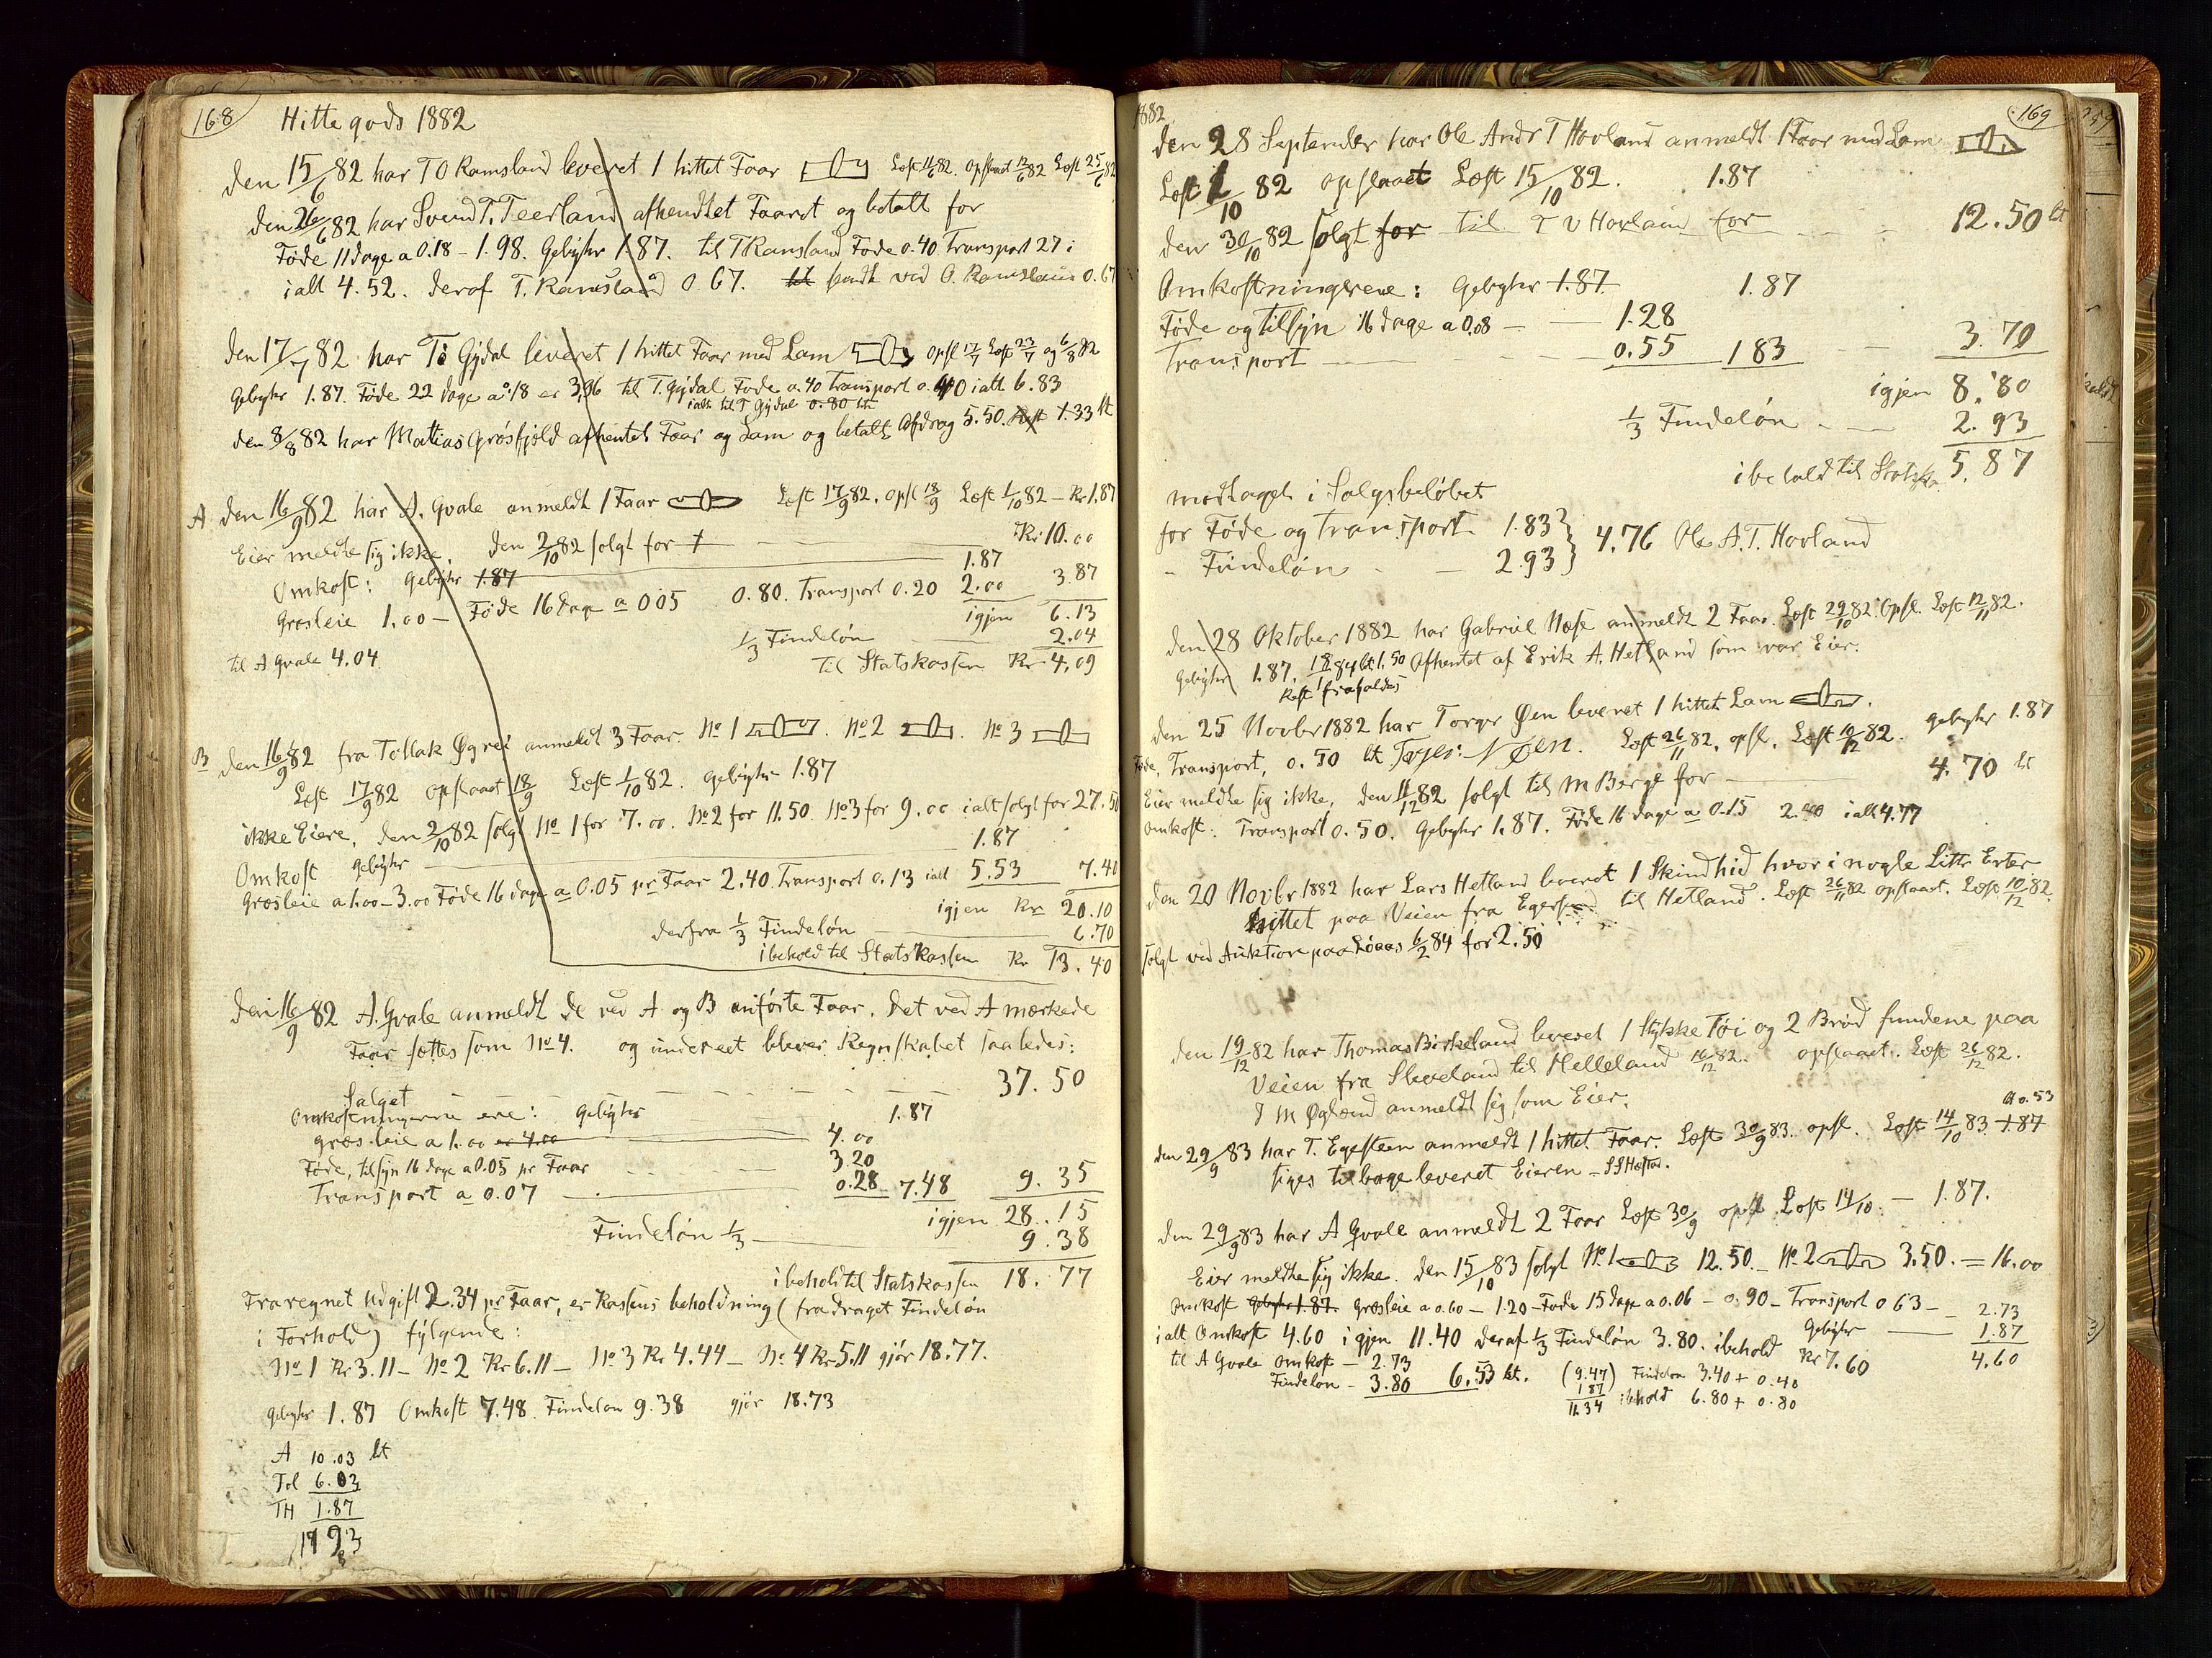 168 Hittegods 1882
den 15/6 82 har T O Ramsland leveret 1 hittet Faar Læst 11/6 82. Opslaaet 12/6 82 Læst 25/6 82
den 26/6 82 har Svend T. Teerland afhendtet Faaret og betalt for
Føde 11 dage a 0.18 – 1.98. Gebyhr 1.87. til T Ramsland Føde 0.40 Transport 27 i
ialt 4.52. deraf T. Ramsland 0.67. sendt ved O. Ramsland 0.67
den 17/7 82 har Gydal leveret 1 hittet Faar med Lam opsl 17/7 Læst 23/7 og 6/8 82
Gebyhr 1.87. Føde 22 dage a 0.18 er 3.96 til T. Gydal Føde 0.40 Transport 0.40 ialt 6.83
ialt til T Gydal 0.80
den 8/8 82 har Matias Grøsfjeld afhentet Faar og Lam og betalt Afdrag 5.50. Rest 1.33 bt
A den 16/9 82 har A. Qvale anmeldt 1 Faar Læst 17/9 82. opsl 18/9 Læst 1/10 82 – Kr 1.87
Eier meldte sig ikke. den 2/10 82 solgt for Kr. 10.00
Omkost: Gebyhr 1.87 1.87
Græsleie 1.00 – Føde 16 dage a 005 0.80. Transport 0.20 2.00 3.87
igjen 6.13
1/3 Findeløn 2.04
til A Qvale 4.04. Til Statskassen Kr. 4.09
B den 16/9 82 fra Tollak Øgrei anmeldt 3 Faar. No 1 . No 2 . No 3
Læst 17/9 82 opslaaet 18/9 Læst 1/10 82. Gebyhr 1.87
ikke Eiere. den 2/10 82 solgt No 1 for 7.00. No 2 for 11.50. No 3 for 9.00 ialt solgt for 27.50
Omkost Gebyhr 1.87
Græsleie a 1.00 – 3.00 Føde 16 dage a 0.05 pr Faar 2.40. Transport 0.13 ialt 5.53 7.40
igjen Kr 20.10
derfra 1/3 Findeløn 6.70
ibehold til Statskassen Kr 13.40
den 16/9 82 A. Qvale anmeldt de ved A og B anførte Faar. Det ved A mærkede
Faar sættes som No 4. og under eet bliver Regnskabet saaledes:
Salget 37.50
Omkostningerne ere: Gebyhr 1.87
græsleie a 1.00 4.00
Føde, tilsyn 16 dage a 0.05 pr Faar 3.20
Transport a 0.07 0.28 7.48 9.35
igjen 28.15
Findeløn 1/3 9.38
ibehold til Statskassen 18.77
Fraregnet Udgift 2.34 pr Faar, er Kassens beholdning (fradraget Findeløn
i Forhold) fylgende:
No 1 Kr 3.11 – No 2 Kr 6.11 – No 3 Kr 4.44 – No 4 Kr 5.11 gjør 18.77.
Gebyhr 1.87 Omkost 7.48. Findeløn 9.38 gjør 18.73
A 10.03 bt
Tol 6.03
TH 1.87
1882 169
den 28 September har Ole Andr T Hovland anmeldt 1 Faar med Lam
Læst 1/10 82 opslaaet Læst 15/10 82. 1.87
den 30/10 82 solgt for til T V Hovland for 12.50 bt
Omkostningerne: Gebyhr 1.87 1.87
Føde og tilsyn 16 dage a 0.08 – 1.28
Transport 0.55 183 3.70
igjen 8.80
1/3 Findeløn 2.93
ibehold til Statska. 5.87
modtaget i Salgsbeløbet
for Føde og Transport 1.83
– Findeløn – 2.93 } 4.76 Ole A.T. Hovland
den 28 Oktober 1882 har Gabriel Næse anmeldt 2 Faar. Læst 29/10 82. Opsl. Læst 12/11 82.
Gebyhr 1.87. bt 1.50 Afhentet af Erik A. Hetland som var Eier.
Rest frafaldes
den 25 Novbr 1882 har Torger Øen leveret 1 hittet Lam .
Føde, Transport, 0.50 bt Torjer N Øen. Læst 26/11 82. opsl. Læst 10/12 82. Gebyhr 1.87
Eier meldte sig ikke. den 11/12 82 solgt til M Berge for 4.70 bt
Omkost: Transport 0.50. Gebyhr 1.87. Føde 16 dage a 0.15 2.40 ialt 4.77
den 20 Novbr 1882 har Lars Hetland leveret 1 Skindhid hvori nogle Littr Erter
hittet paa Veien fra Egersund til Hetland. Læst 26/11 82 opslaaet. Læst 10/12 82.
solgt ved Auktion paa Løaas 6/2 84 for 2.50
den 19/12 82 har Thomas Birkeland leveret 1 Stykke Tøi og 2 Brød fundene paa
Veien fra Sleveland til Helleland 16/12 82. opslaaet. Læst 26/12 82.
I M Øglænd anmeldt sig som Eier.
bt 0.53
den 29/9 83 har T. Egesteen anmeldt 1 hittet Faar. Læst 30/9 83. opsl. Læst 14/10 83 1.87
siges tilbageleveret Eieren –
den 29/9 83 har A Qvale anmeldt 2 Faar Læst 30/9 opsl Læst 14/10. – 1.87.
Eier meldte sig ikke. den 15/10 83 solgt No. 1 12.50. – No. 2 3.50. = 16.00
Omkost Gebyhr 1.87. Græsleie a 0.60 – 1.20 – Føde 15 dage a 0.06 – 0.90 – Transport 0 63 – 2.73
ialt Omkost 4.60 igjen 11.40 deraf 1/3 Findeløn 3.80. ibehold Gebyhr 1.87
til A Qvale Omkost – 2.73 Kr 7.60 4.60
Findeløn – 3.80 6.53 bt. (9.47) Findeløn 3.40 + 0.40
1 87
11.34 ibehold 6.80 + 0.80